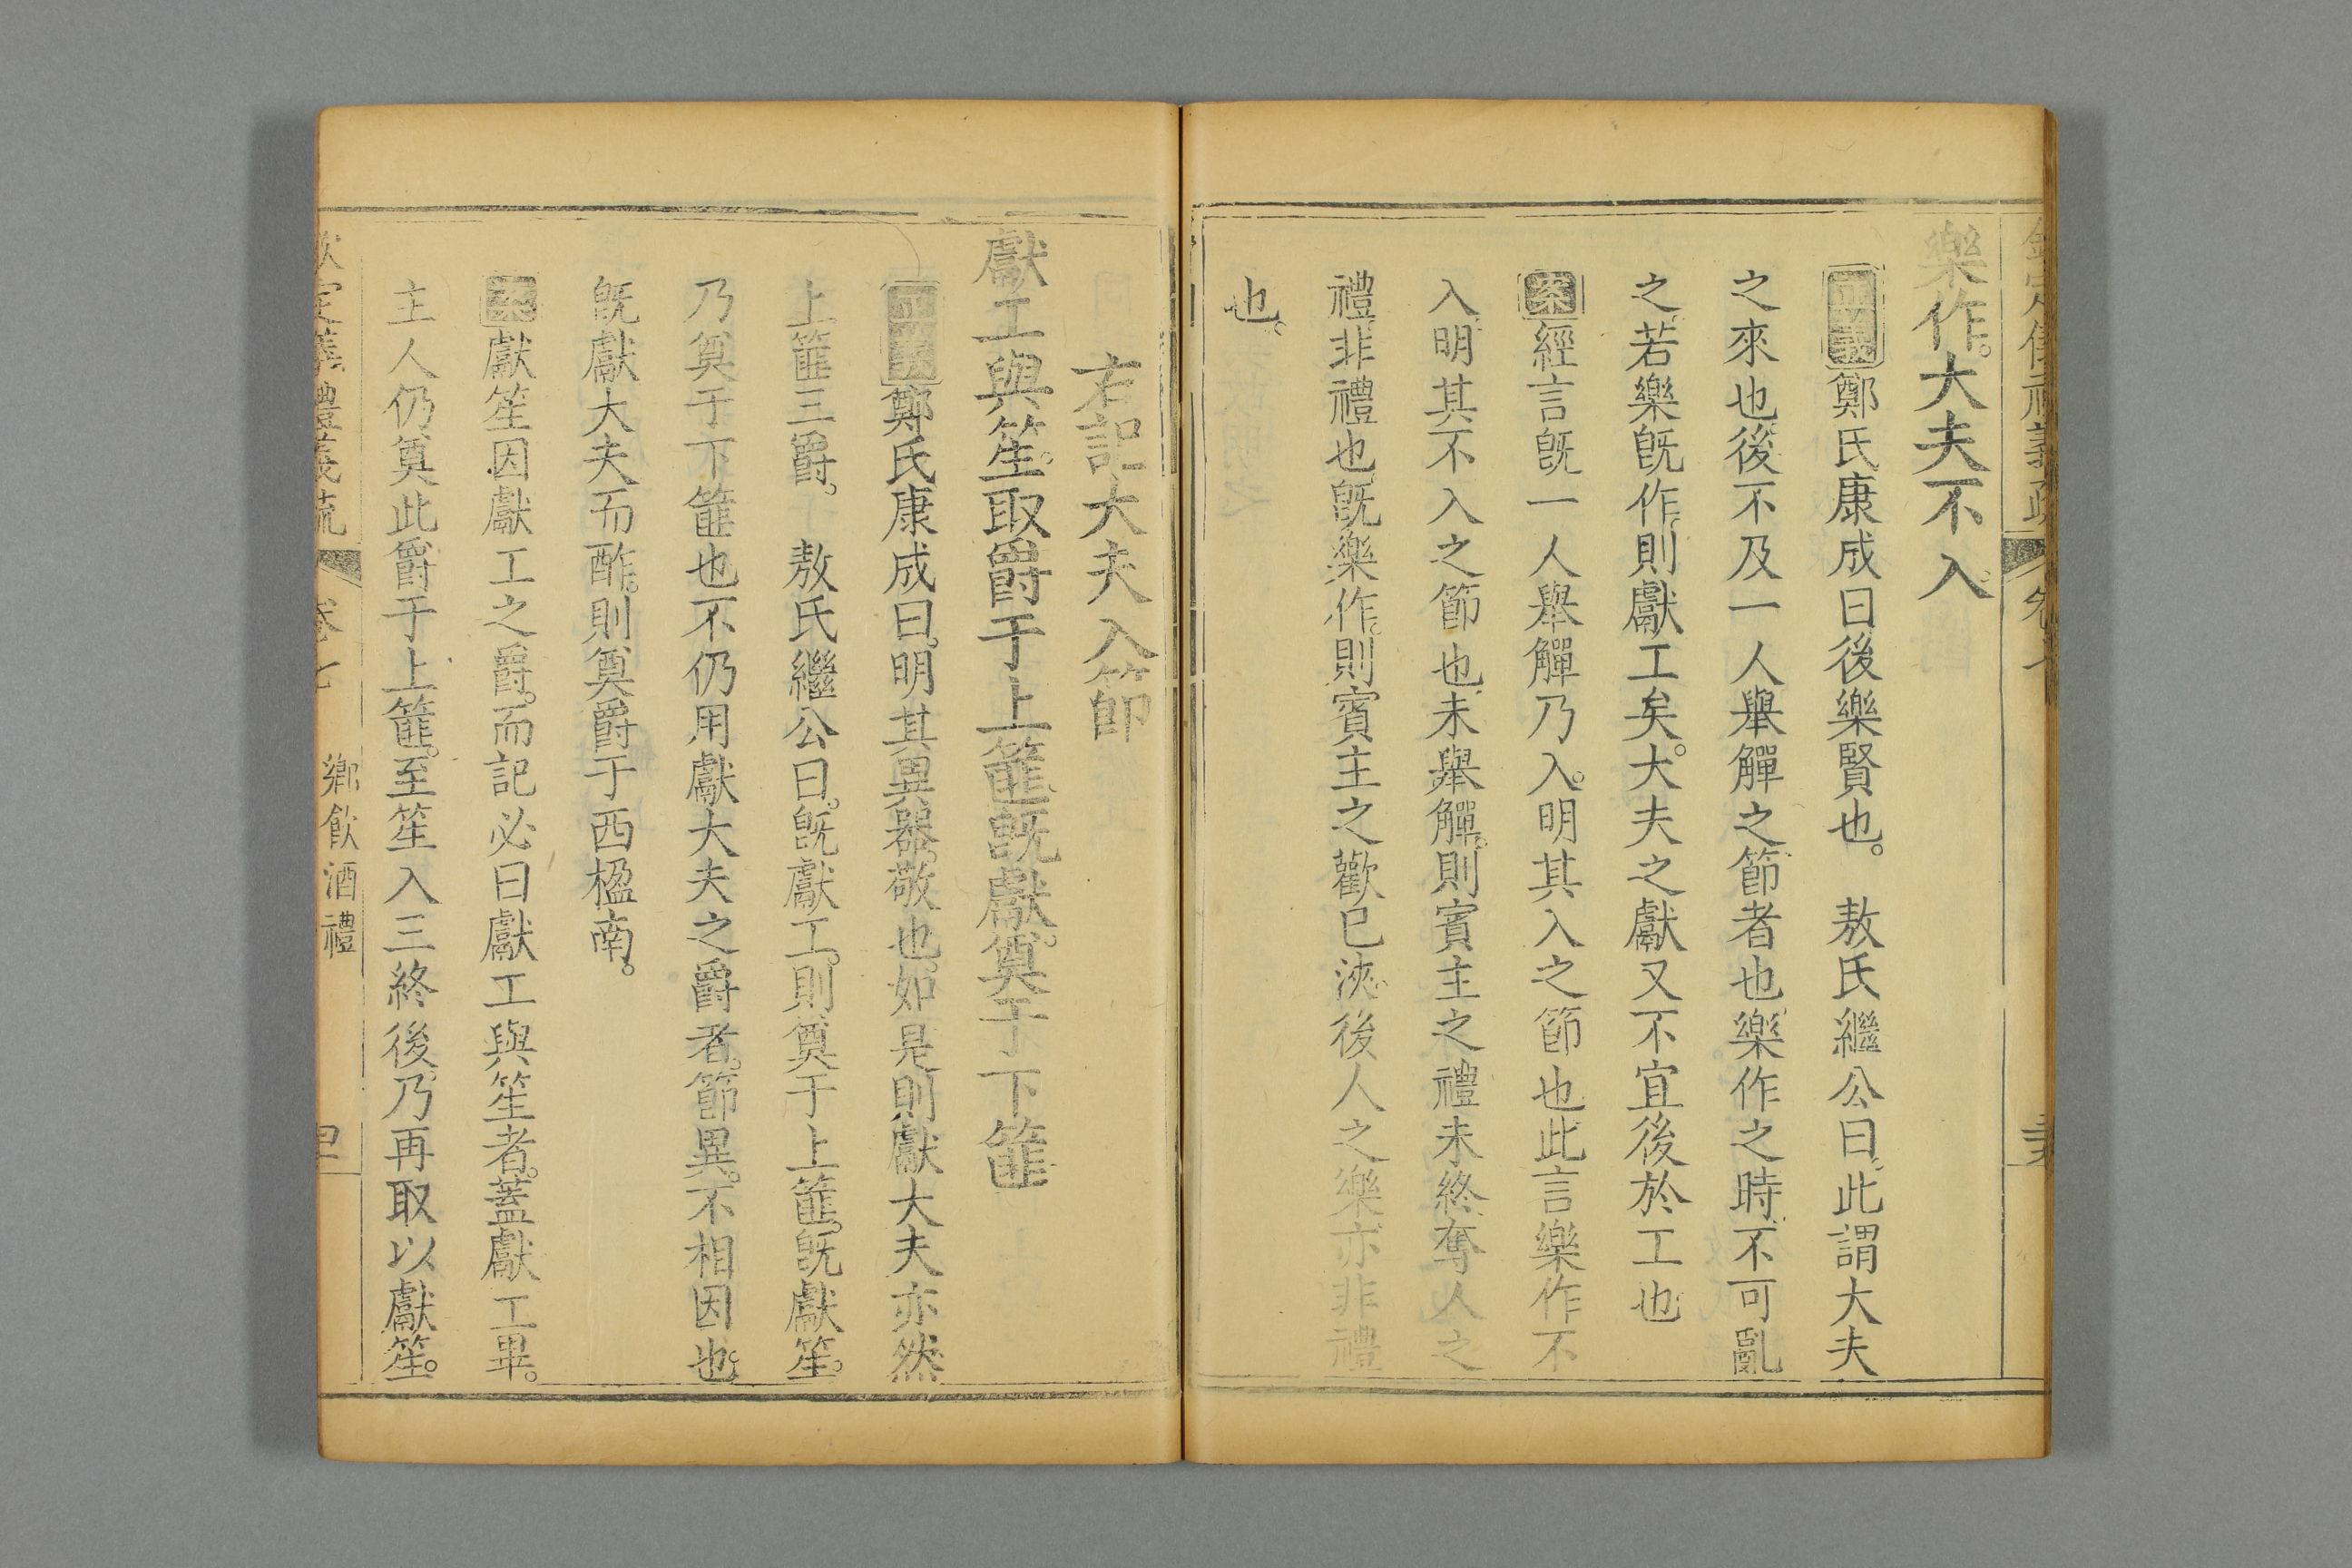 樂作。大夫不入。
正義鄭氏康成曰後樂賢也。 敖氏繼公曰此謂大夫
之來也後不及一人舉觶之節者也樂作之時不可亂
之若樂旣作則獻工矣。大夫之獻又不宜後於工也
案經言旣一人舉觶乃入。明其入之節也此言樂作不
入明其不入之節也未舉觶。則賓主之禮未終奪人之
禮非禮也旣樂作。則賓主之歡已浹後人之樂亦非禮
也。
右記大夫入節
獻工與笙。取爵于上篚旣獻。奠于下篚
正義鄭氏康成曰。明其異器。敬也。如是則獻大夫亦然
上篚三爵。 敖氏繼公曰。旣獻工。則奠于上篚。旣獻笙。
乃奠于下篚也不仍用獻大夫之爵者。節異。不相因也。
旣獻大夫而酢。則奠爵于西楹南。
案獻笙因獻工之爵。而記必曰獻工與笙者。蓋獻工畢。
主人仍奠此爵于上篚。至笙入三終後。乃再取以獻笙。
欽定儀禮義疏 卷七 鄉飲酒禮